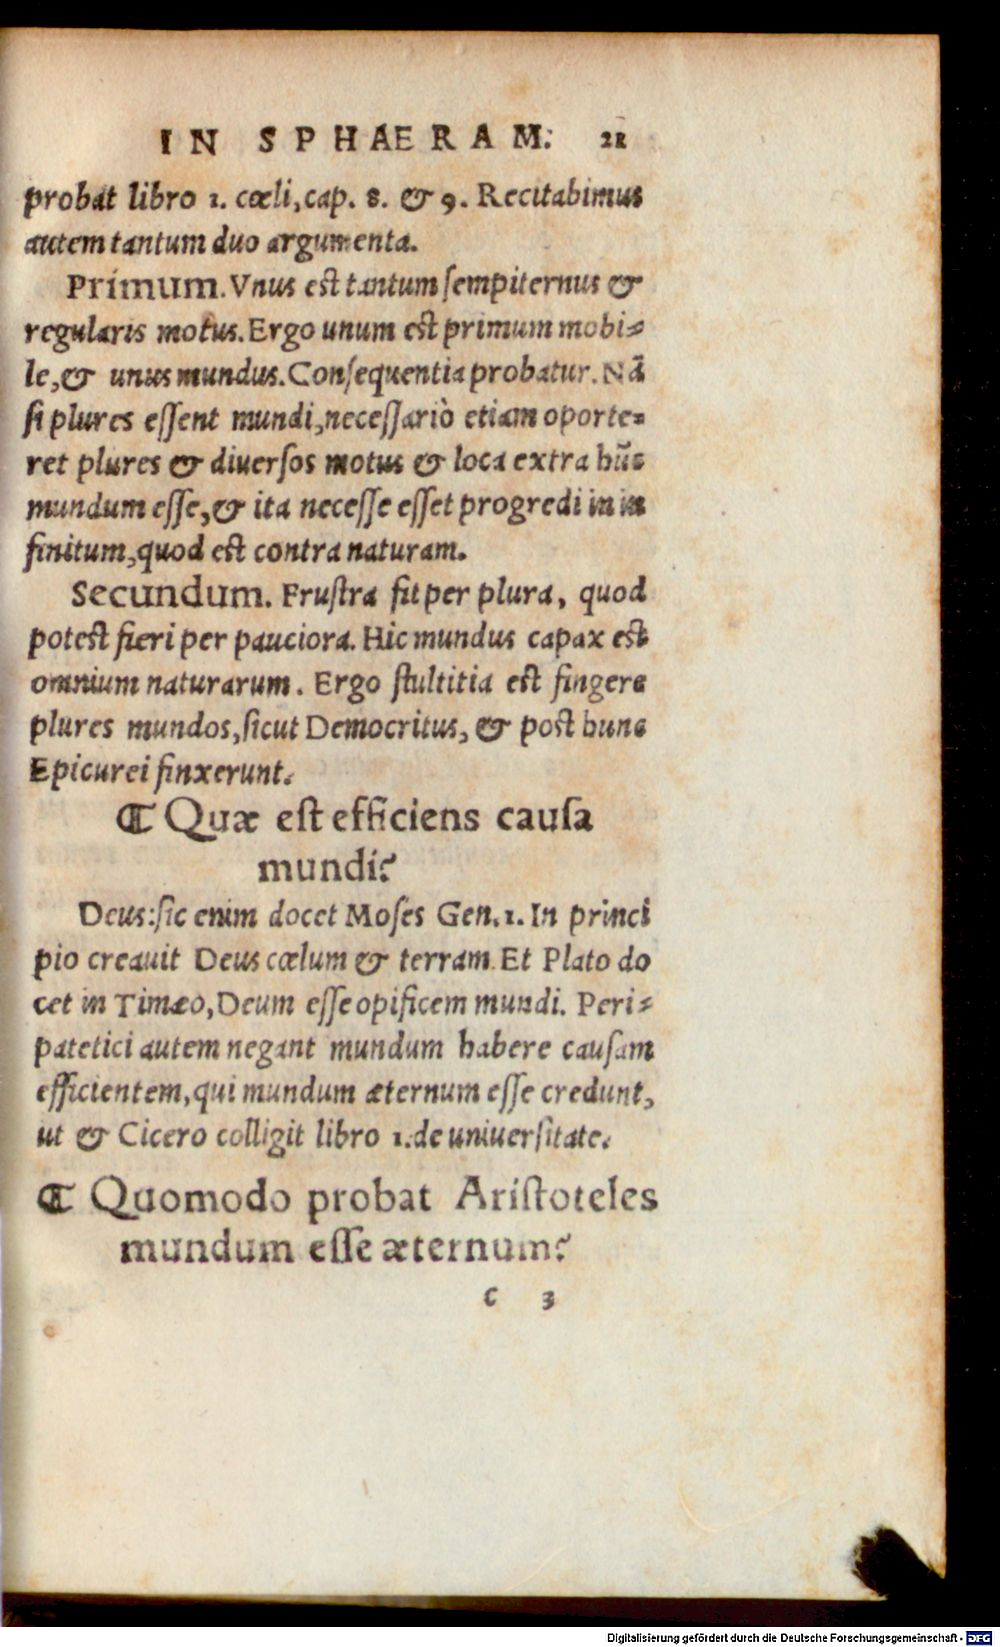 IN SPHAERAM. 21
probat libro 1. cœli, cap. 8. & 9. Recitabimus
autem tantum duo argumenta.
Primum. Vnus est tantum ſempiternus &
regularis motus. Ergo unum est primum mobi-
le, & unus mundus. Conſequentia probatur. Nã
ſi plures eſſent mundi, neceſſariò etiam oporte-
ret plures & diuerſos motus & loca extra hũc
mundum eſſe, & ita neceſſe eſſet progredi in in
finitum, quod est contra naturam.
Secundum. Fruſtra fit per plura, quod
potest fieri per pauciora. Hic mundus capax est
omnium naturarum. Ergo ſtultitia est fingere
plures mundos, ſicut Democritus, & poſt hunc
Epicurei finxerunt.
¶ Quæ eſt efficiens cauſa
mundi?
Deus: ſic enim docet Moſes Gen. 1. In princi
pio creauit Deus cœlum & terram. Et Plato do
cet in Timæo, Deum eſſe opificem mundi. Peri-
patetici autem negant mundum habere cauſam
efficientem, qui mundum æternum eſſe credunt,
ut & Cicero colligit libro 1. de uniuerſitate.
¶ Quomodo probat Ariſtoteles
mundum eſſe æternum?
C 3
Digitalisierung gefördert durch die Deutsche Forschungsgemeinschaft - DFG